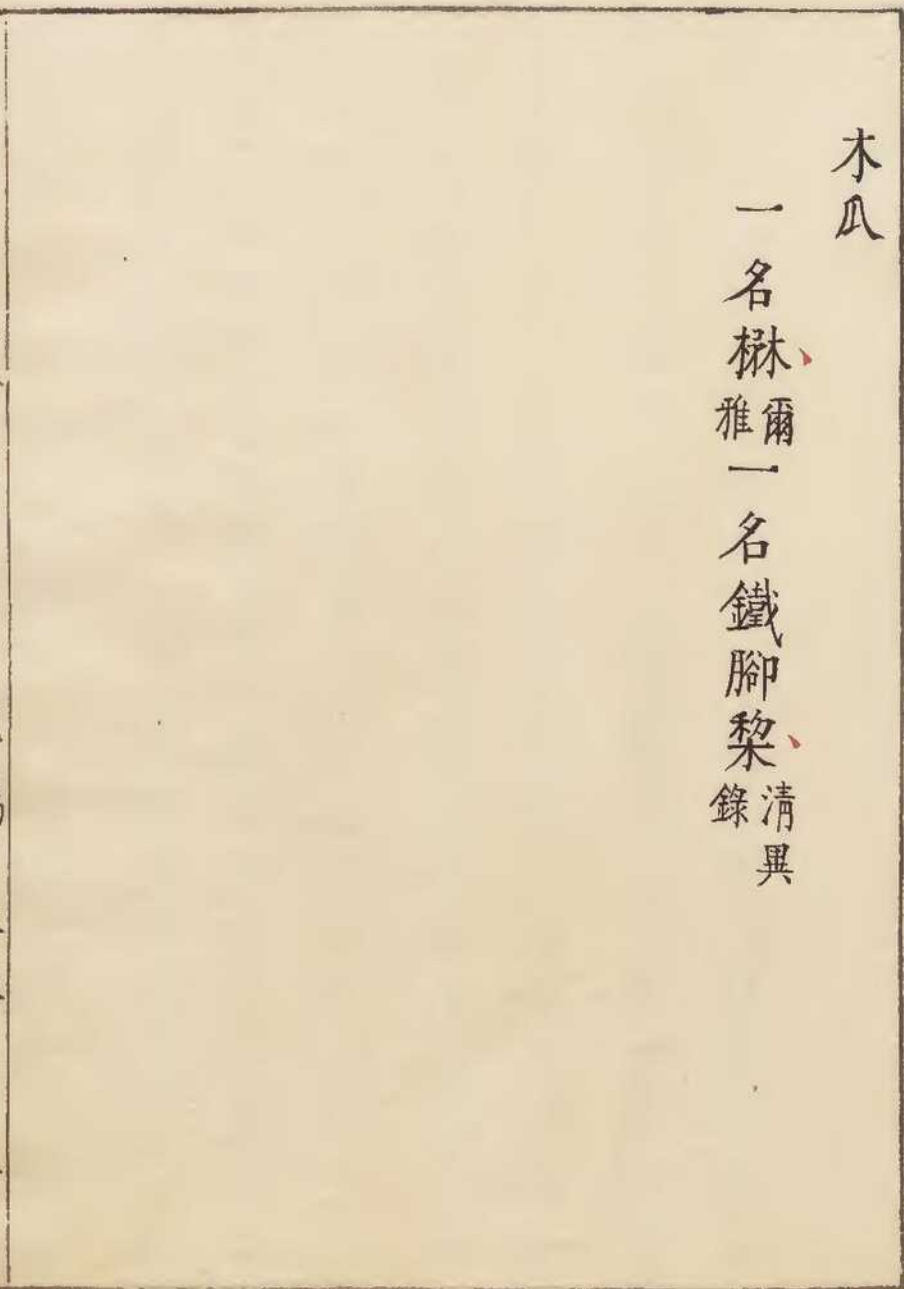 木瓜
一名楙爾雅一名鐵腳棃清異錄